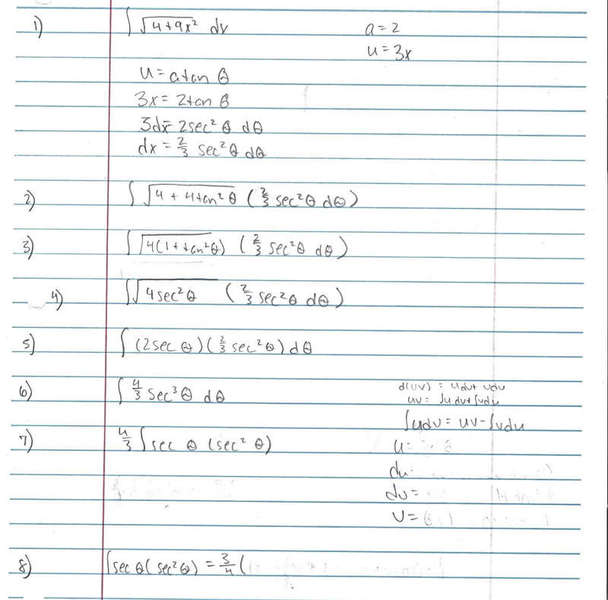 1) ∫ √4+9x² dx a=2
u=3x
u = a tan θ
3x = 2tan θ
3dx = 2sec² θ dθ
dx = 2/3 sec² θ dθ
2) ∫ √4 + 4tan² θ ( 2/3 sec² θ dθ )
3) ∫ √4(1 + tan² θ) ( 2/3 sec² θ dθ )
4) ∫ √4 sec² θ ( 2/3 sec² θ dθ )
5) ∫ (2sec θ)( 2/3 sec² θ) dθ
6) ∫ 4/3 sec³ θ dθ
d(uv) = udv+ vdu
uv = ∫udv+∫vdu
∫udv = uv-∫vdu
7) 4/3 ∫ sec θ (sec² θ)
u=
du=
dv=
v=
8) ∫sec θ( sec² θ) = 3/4 (